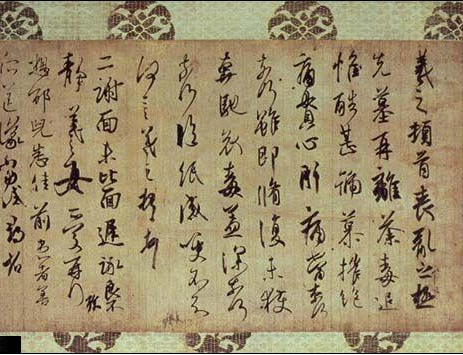 羲之頓首喪亂之極
先墓再離荼毒追
惟酷甚號慕摧絕
痛貫心肝痛當奈何
奈何雖即脩復未獲
奔馳哀毒益深奈何
奈何臨紙感哽不知
何言羲之頓首頓首
二謝面未比面遲詠良不
靜羲之女愛再拜
想邰兒悉佳前患者善